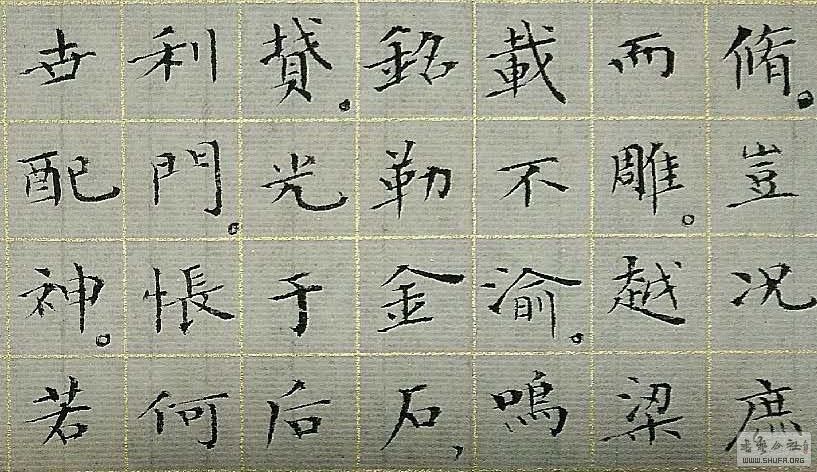 脩。豈况庶
而雕。越梁
載不渝。鳴
銘勒金石,
。光于后
利門。悵何
世配神。若
书艺公社
WWW.SHUFA.ORG